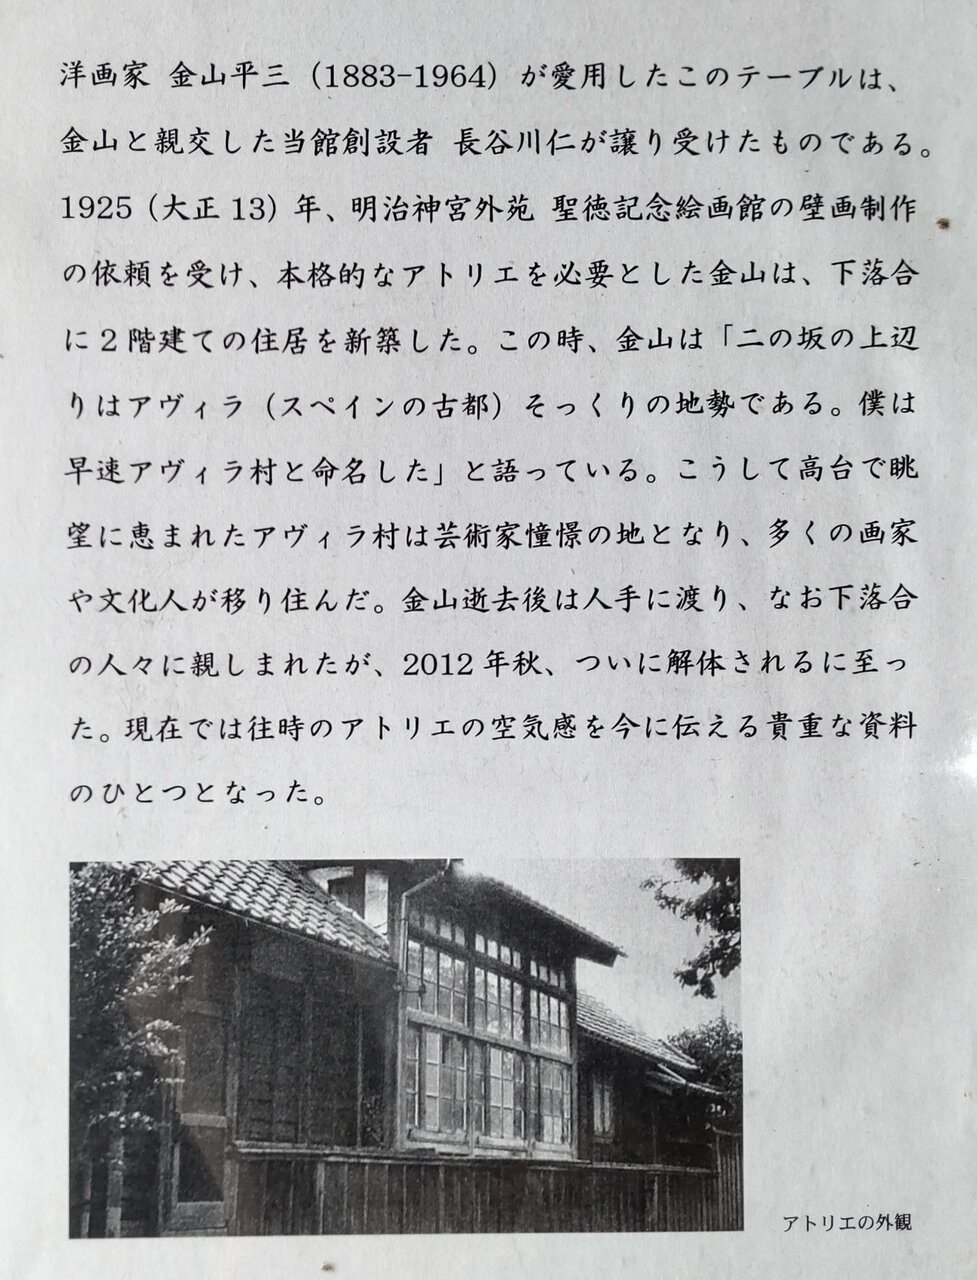 洋画家 金山平三（1883-1964）が愛用したこのテーブルは、
金山と親交した当館創設者 長谷川仁が譲り受けたものである。
1925（大正 13）年、明治神宮外苑 聖徳記念絵画館の壁画制作
の依頼を受け、本格的なアトリエを必要とした金山は、下落合
に 2 階建ての住居を新築した。この時、金山は「二の坂の上辺
りはアヴィラ（スペインの古都）そっくりの地勢である。僕は
早速アヴィラ村と命名した」と語っている。こうして高台で眺
望に恵まれたアヴィラ村は芸術家憧憬の地となり、多くの画家
や文化人が移り住んだ。金山逝去後は人手に渡り、なお下落合
の人々に親しまれたが、2012 年秋、ついに解体されるに至っ
た。現在では往時のアトリエの空気感を今に伝える貴重な資料
のひとつとなった。
アトリエの外観